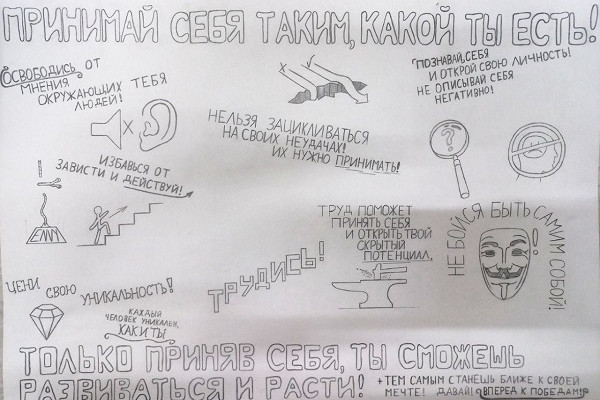 ПРИНИМАЙ СЕБЯ ТАКИМ, КАКОЙ ТЫ ЕСТЬ!
ОСВОБОДИСЬ ОТ
МНЕНИЯ
ОКРУЖАЮЩИХ ТЕБЯ
ЛЮДЕЙ!
НЕЛЬЗЯ ЗАЦИКЛИВАТЬСЯ
НА СВОИХ НЕУДАЧАХ!
ИХ НУЖНО ПРИНИМАТЬ!
ПОЗНАВАЙ СЕБЯ
И ОТКРОЙ СВОЮ ЛИЧНОСТЬ!
НЕ ОПИСЫВАЙ СЕБЯ
НЕГАТИВНО!
?
ИЗБАВЬСЯ ОТ
ЗАВИСТИ И ДЕЙСТВУЙ!
ТРУД ПОМОЖЕТ
ПРИНЯТЬ СЕБЯ
И ОТКРЫТЬ ТВОЙ
СКРЫТЫЙ
ПОТЕНЦИАЛ.
ТРУДИСЬ!
НЕ БОЙСЯ БЫТЬ САМИМ СОБОЙ!
ЦЕНИ СВОЮ УНИКАЛЬНОСТЬ!
КАЖДЫЙ
ЧЕЛОВЕК УНИКАЛЕН,
КАК И ТЫ
ТОЛЬКО ПРИНЯВ СЕБЯ, ТЫ СМОЖЕШЬ
РАЗВИВАТЬСЯ И РАСТИ!
+ ТЕМ САМЫМ СТАНЕШЬ БЛИЖЕ К СВОЕЙ
МЕЧТЕ! ДАВАЙ! ВПЕРЕД К ПОБЕДАМ!